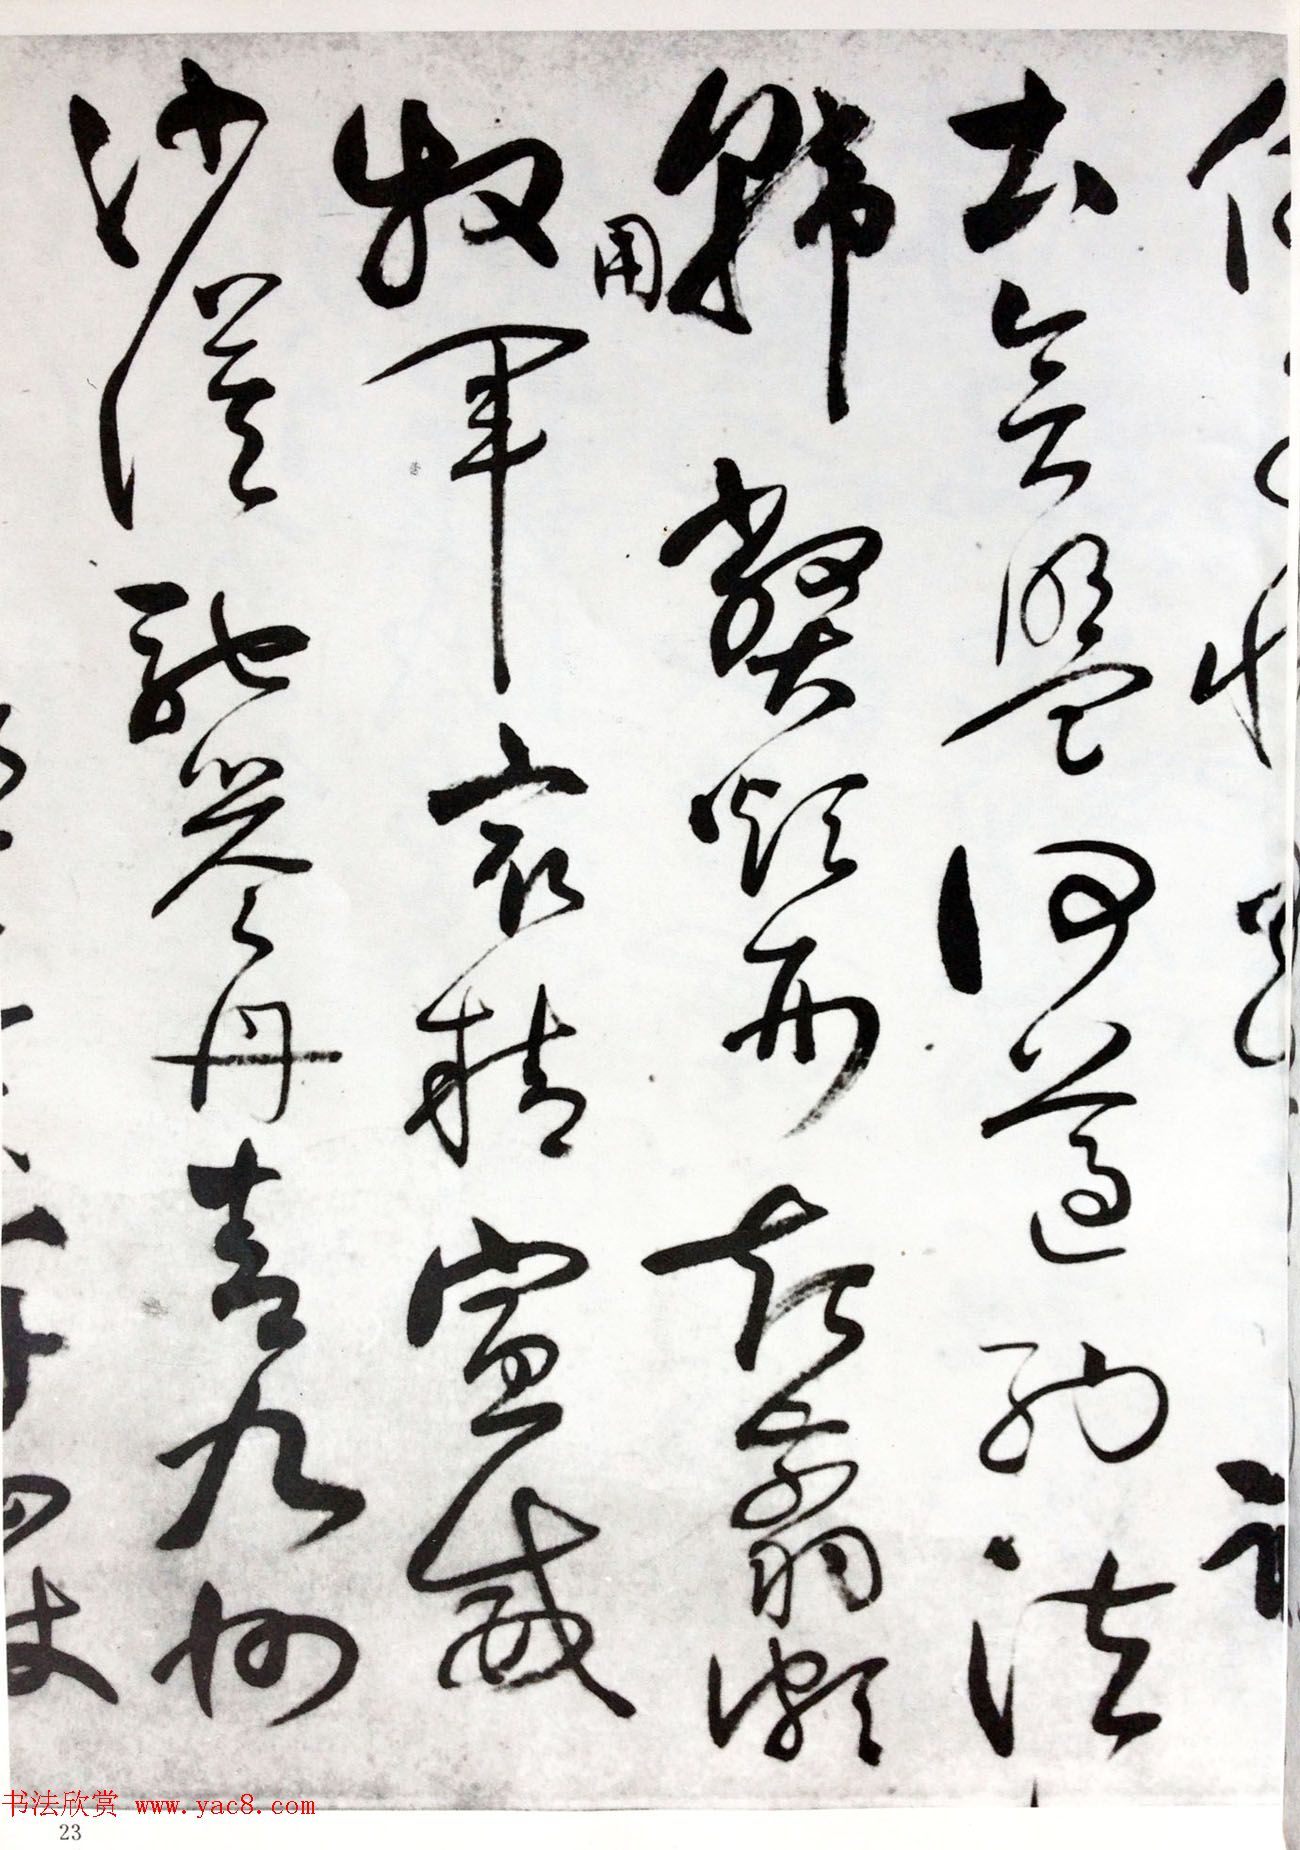 土會盟何遵約法
韓弊煩刑起翦頗
牧用軍最精宣威
沙漠馳譽丹青九州
书法欣赏 www.yac8.com
23